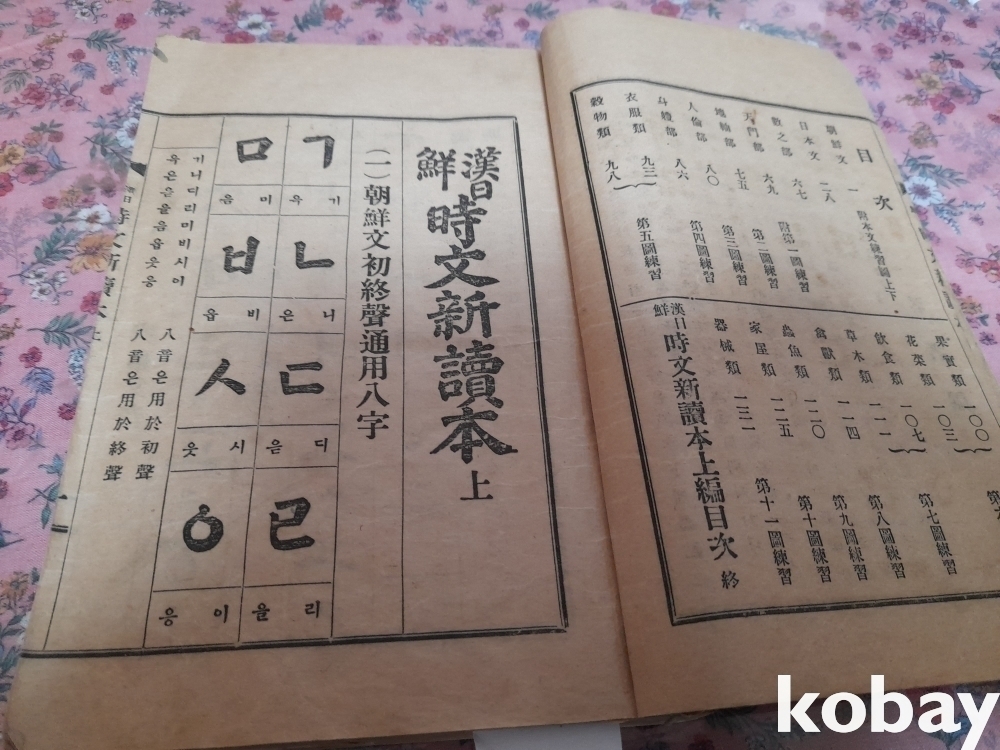 目次
朝鮮文 一 附本文練習圖上下
日本文 二八
數之部 六七
天門部 六九 附第一圖練習
七五 第二圖練習
人倫部 八〇 第三圖練習
八六 第四圖練習
衣服類 九三
穀物類 九八 第五圖練習
果實類 一〇〇
花菜類 一〇三
飲食類 一〇七 第七圖練習
草木類 一一一 第八圖練習
禽獸類 一一四 第九圖練習
蟲魚類 一二〇 第十圖練習
家屋類 一二五 第十一圖練習
器械類
漢日鮮時文新讀本上編目次 終
漢日鮮時文新讀本 上
(一)朝鮮文初終聲通用八字
ㄱ
기 윽
ㄴ
니 은
ㄷ
디 읃
ㄹ
리 을
ㅁ
미 음
ㅂ
비 읍
ㅅ
시 읏
ㅇ
이 응
기니디리미비시이 八音은用於初聲
윽은읃을음읍읏응 八音은用於終聲
kobay